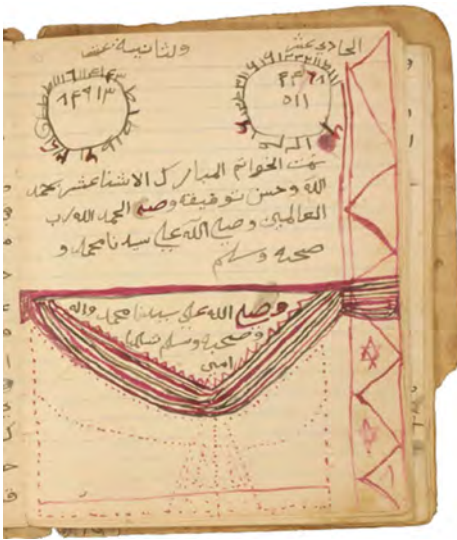 الحادي عشر
ولثانية عشر
٥١١
تمت الخواتم المباركه الاشناعشر بحمد
الله وحسن توفيقه وصلى الحمد الله رب
العالمين وصلى الله على سيدنا محمد و
صحبه وسلم
وصلى الله على سيدنا محمد واله
وصحبه وسلم تسليما
امين